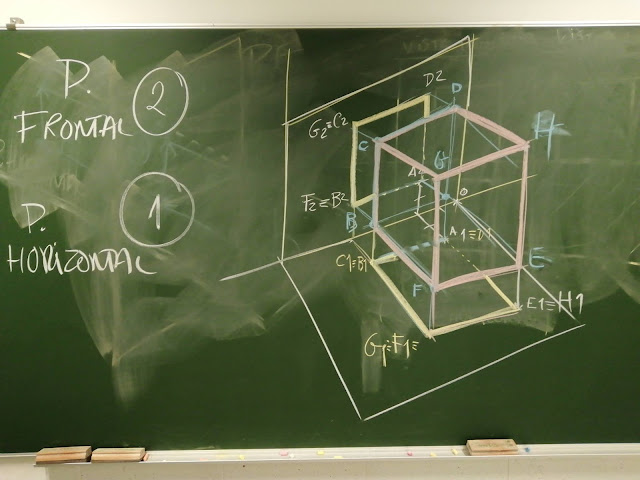 P.
FRONTAL
2
P.
HORIZONTAL
1
D2
D
G2≡C2
C
G
H
A2
F2≡B2
B
O
A1≡D1
C1≡B1
E
F
E1≡H1
G1≡F1≡